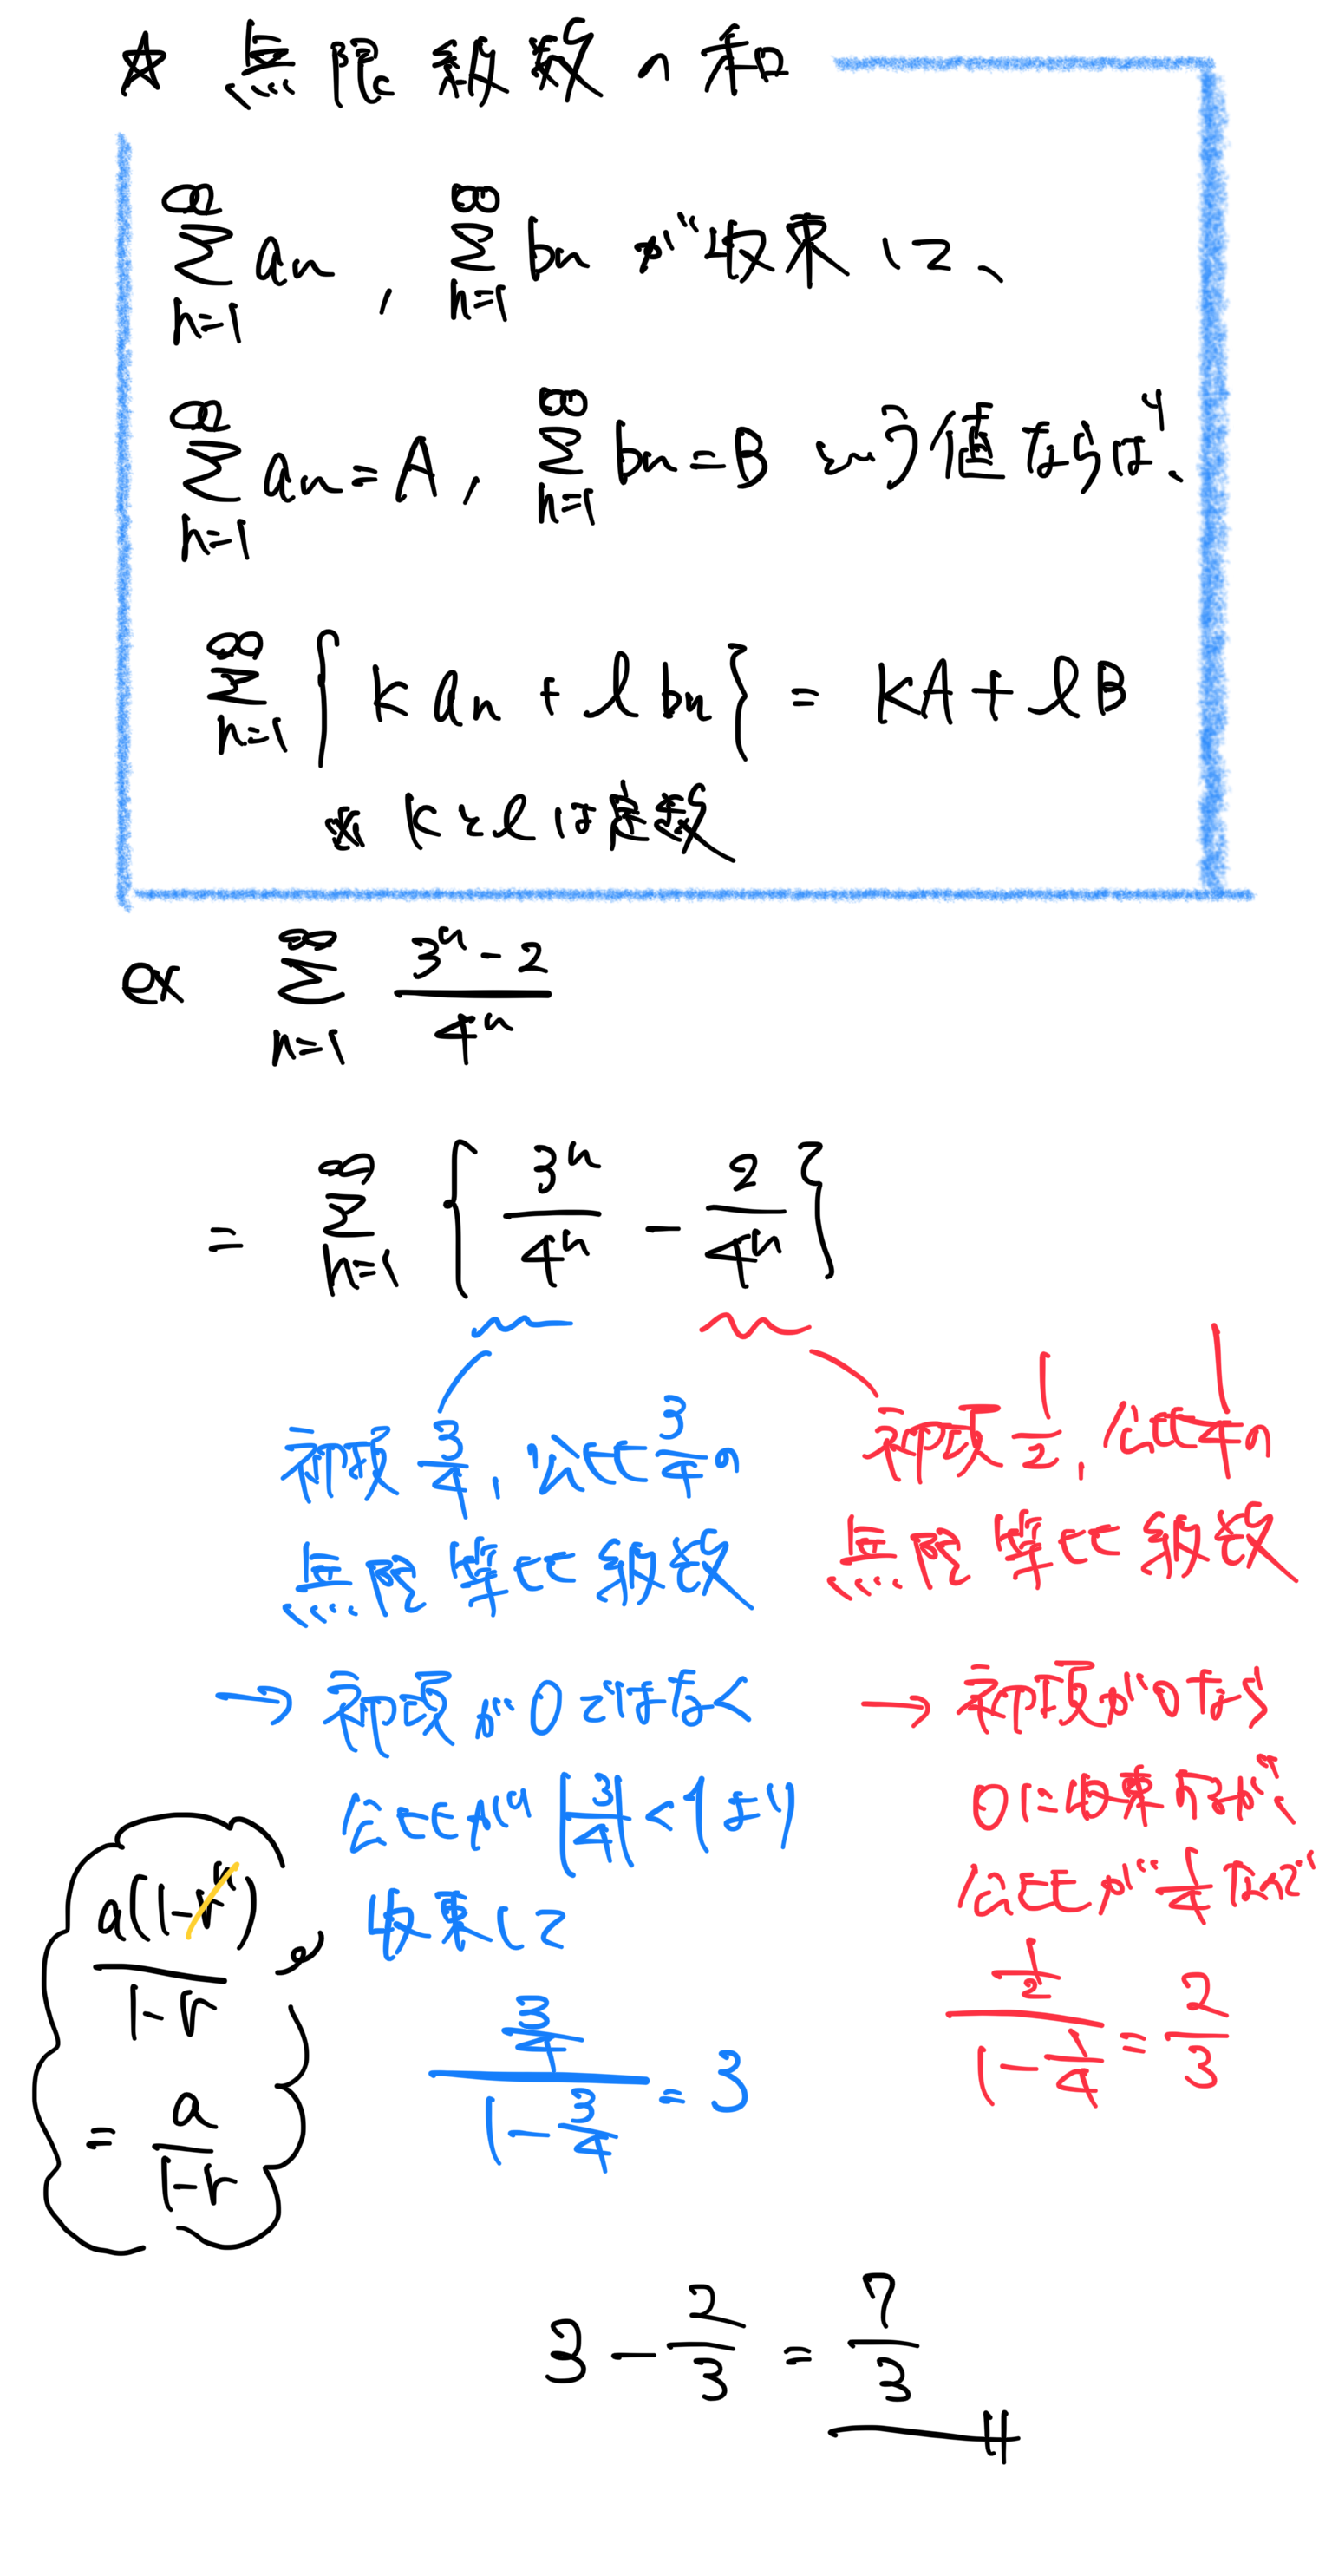 ☆ 無限級数の和
∞∑n=1 an , ∞∑n=1 bn が収束して、
∞∑n=1 an = A , ∞∑n=1 bn = B という値ならば、
∞∑n=1 { k an + l bn } = kA + lB
※ kとlは定数
ex ∞∑n=1 (3^n - 2)/4^n
= ∞∑n=1 { 3^n/4^n - 2/4^n }
初項 3/4, 公比 3/4 の
無限等比級数
→ 初項が0ではなく
公比が |3/4| < 1 より
収束して
(3/4)/(1 - 3/4) = 3
初項 1/2, 公比 1/4 の
無限等比級数
→ 初項が0なら
0に収束するが、
公比が 1/4 なので
(1/2)/(1 - 1/4) = 2/3
a(1-r^n)/(1-r)
= a/(1-r)
3 - 2/3 = 7/3